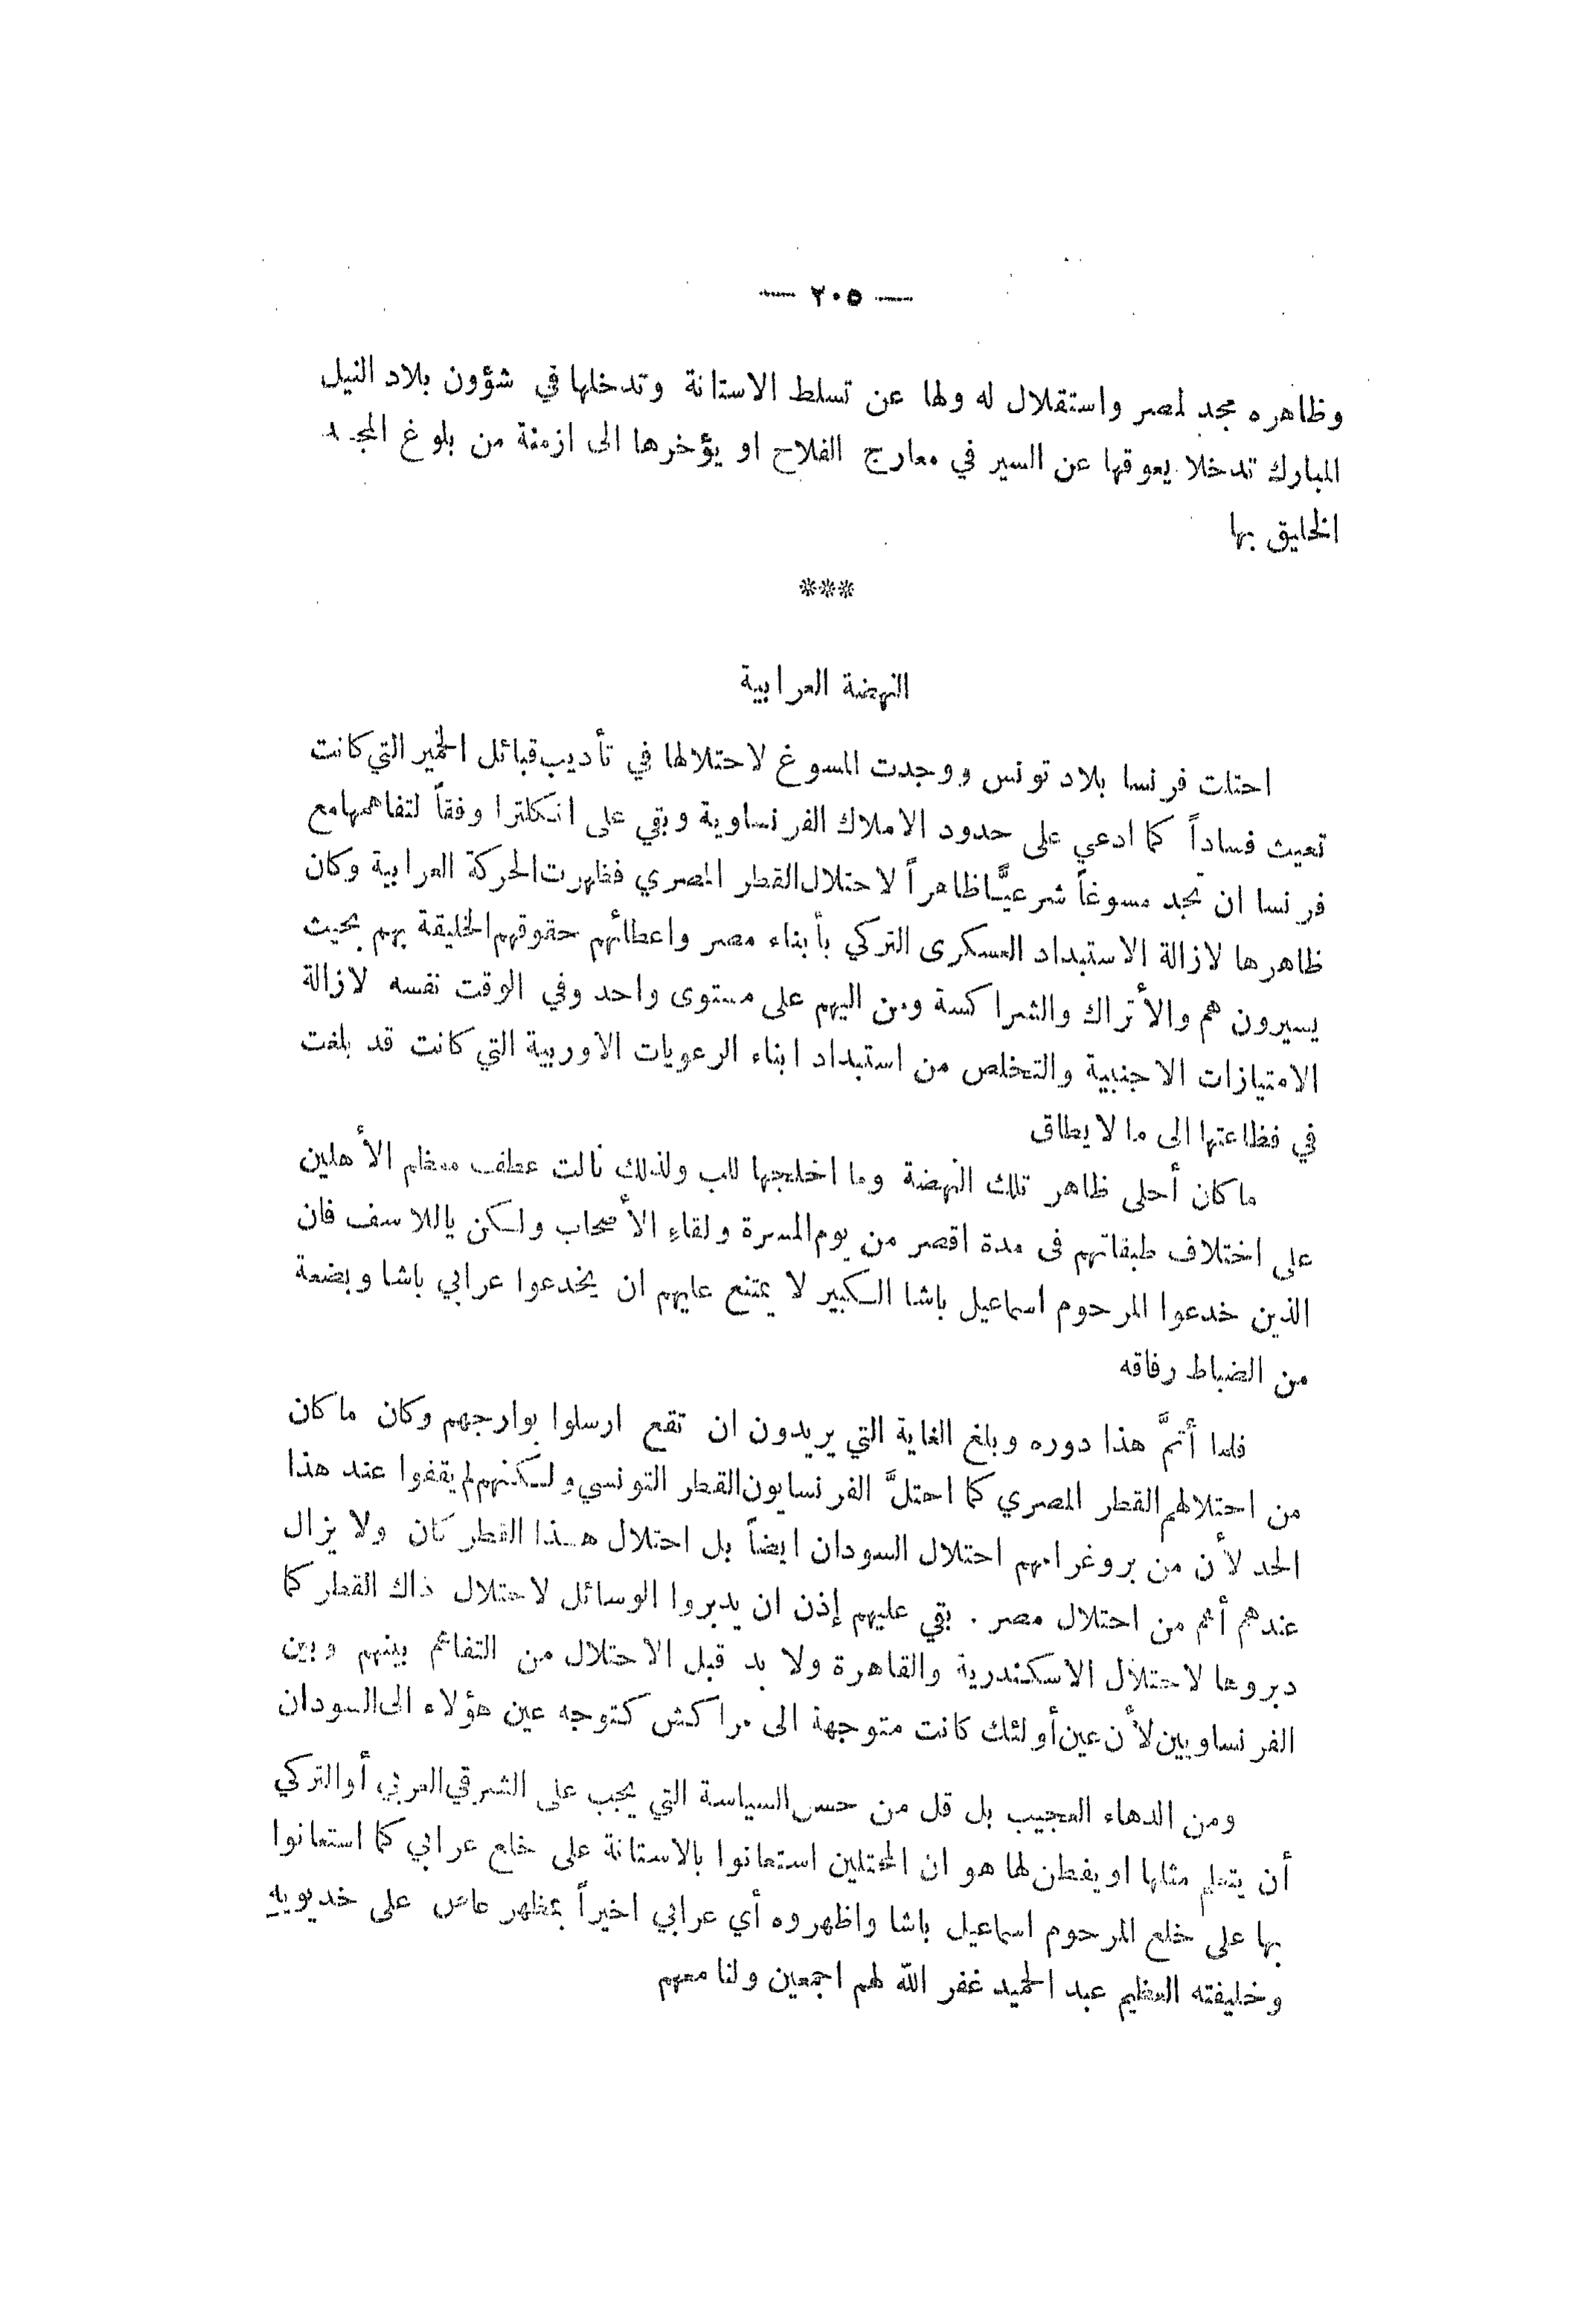 — ٢٠٥ —
وظاهره مجد لمصر واستقلال له ولها عن تسلط الاستانة وتدخلها في شؤون بلاد النيل
المبارك تدخلا يعوقها عن السير في معارج الفلاح او يؤخرها الى ازمنة من بلوغ المجد
الخليق بها
***
النهضة العرابية
احتلت فرنسا بلاد تونس ووجدت المسوغ لاحتلالها في تأديب قبائل الخمير التي كانت
تعيث فساداً كما ادعي على حدود الاملاك الفرنساوية وبقي على انكلترا وفقاً لتفاهمها مع
فرنسا ان تجد مسوغاً شرعيًّا ظاهراً لاحتلال القطر المصري فظهرت الحركة العرابية وكان
ظاهرها لازالة الاستبداد العسكرى التركي بأبناء مصر واعطائهم حقوقهم الخليقة بهم بحيث
يسيرون هم والأتراك والشراكسة ومن اليهم على مستوى واحد وفي الوقت نفسه لازالة
الامتيازات الاجنبية والتخلص من استبداد ابناء الرعويات الاوربية التي كانت قد بلغت
في فظاعتها الى ما لا يطاق
ما كان أحلى ظاهر تلك النهضة وما اخلجها للب ولذلك نالت عطف معظم الأهلين
على اختلاف طبقاتهم فى مدة اقصر من يوم المسرة ولقاءِ الأصحاب ولكن ياللاسف فان
الذين خدعوا المرحوم اسماعيل باشا الكبير لا يمتنع عليهم ان يخدعوا عرابي باشا وبضعة
من الضباط رفاقه
فلما أتمَّ هذا دوره وبلغ الغاية التي يريدون ان تقع ارسلوا بوارجهم وكان ما كان
من احتلالهم القطر المصري كما احتلَّ الفرنسايون القطر التونسي ولكنهم لم يقفوا عند هذا
الحد لأن من بروغرامهم احتلال السودان ايضاً بل احتلال هذا القطر كان ولا يزال
عندهم أهم من احتلال مصر . بقي عليهم إذن ان يدبروا الوسائل لاحتلال ذاك القطر كما
دبروها لاحتلال الاسكندرية والقاهرة ولا بد قبل الاحتلال من التفاهم بينهم وبين
الفرنساويين لأن عين أولئك كانت متوجهة الى مراكش كتوجه عين هؤلاء الى السودان
ومن الدهاء العجيب بل قل من حسن السياسة التي يجب على الشرقي العربي أو التركي
أن يتعلم مثلها او يفطن لها هو ان المحتلين استعانوا بالاستانة على خلع عرابي كما استعانوا
بها على خلع المرحوم اسماعيل باشا واظهروه أي عرابي اخيراً بمظهر عاص على خديويهِ
وخليفته العظيم عبد الحميد غفر الله لهم اجمعين ولنا معهم